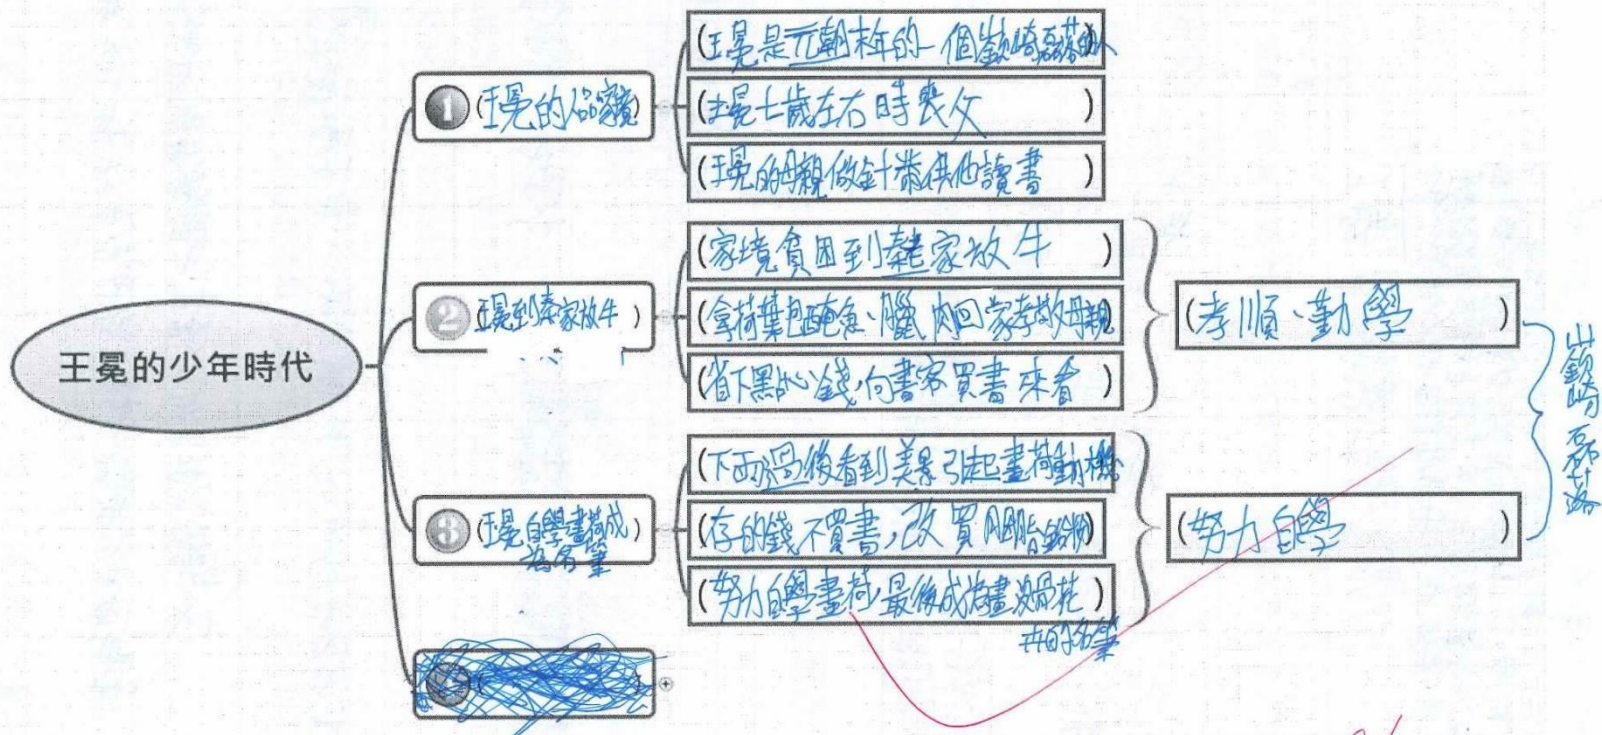 王冕的少年時代
1 (王冕的人品家境)
(王冕是元朝末年的一個嶔崎磊落的人)
(王冕七歲左右時喪父)
(王冕的母親做針黹供他讀書)
2 王冕到秦家放牛)
(家境貧困到秦家放牛)
(拿荷葉包醃魚、臘肉回家孝敬母親
(省下點心錢,向書家買書來看)
(孝順、勤學)
3 (王冕自學畫荷成
為名筆)
(下雨過後看到美景引起畫荷動機
(存的錢不買書,改買胭脂鉛粉)
(努力自學畫荷,最後成為畫沒骨花
卉的名筆)
(努力自學)
嶔崎磊落